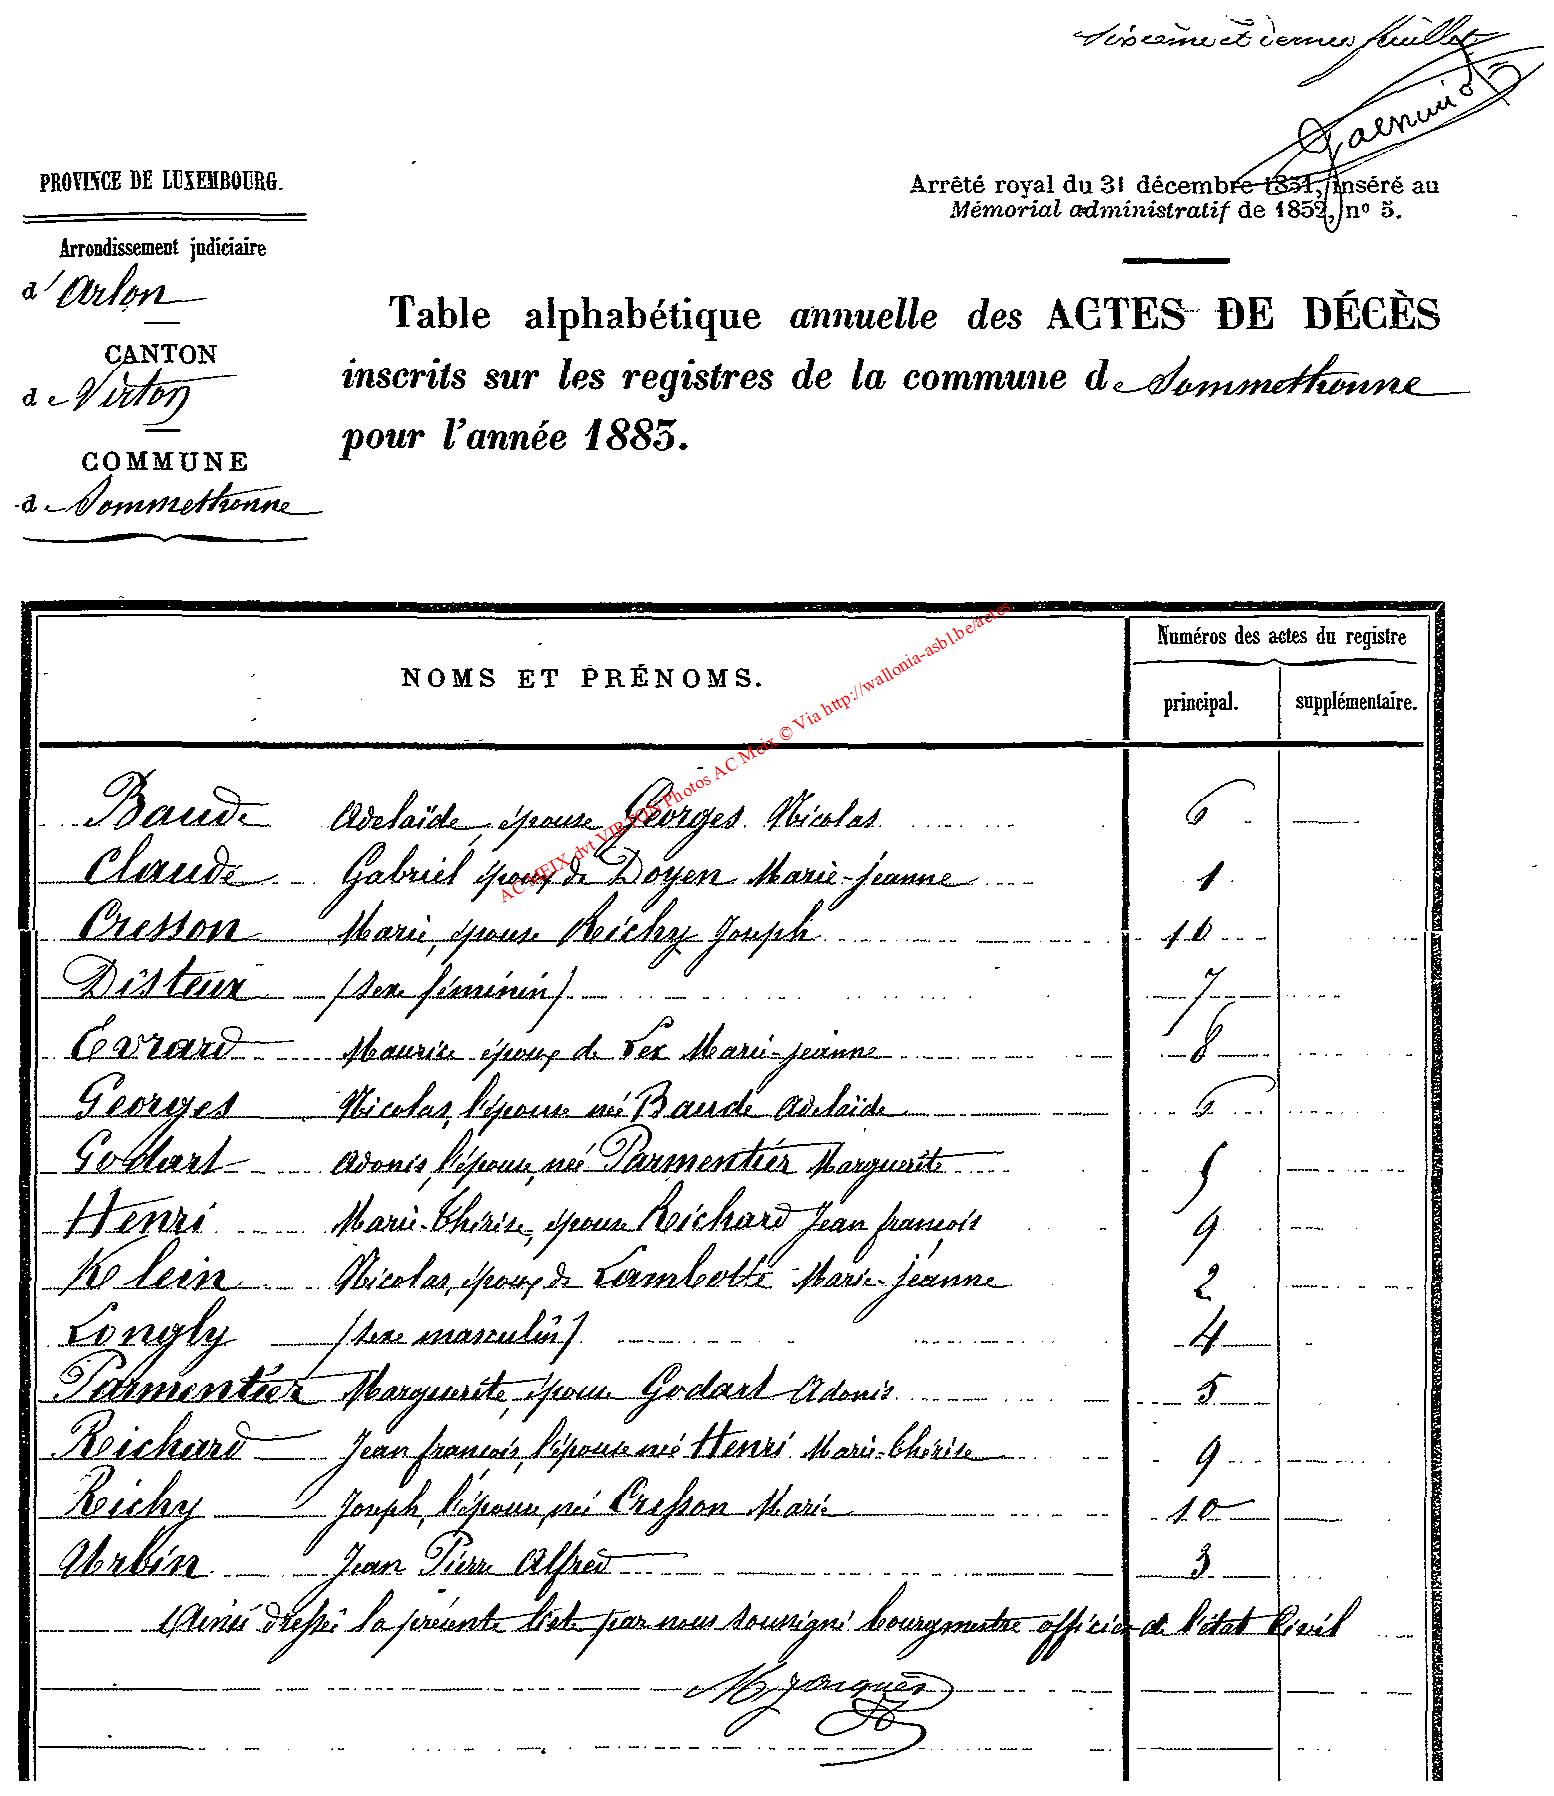 Sixième et dernier feuillet
PROVINCE DE LUXEMBOURG.
Arrondissement judiciaire
d'Arlon
CANTON
de Virton
COMMUNE
de Sommethonne
Arrêté royal du 31 décembre 1851, inséré au
Mémorial administratif de 1852, nº 5.
Table alphabétique annuelle des ACTES DE DÉCÈS
inscrits sur les registres de la commune de Sommethonne
pour l'année 1883.
NOMS ET PRÉNOMS.
Numéros des actes du registre
principal. supplémentaire.
AC MEIX dvt VIRTON Photos AC Meix © Via http://wallonia-asbl.be/actes
Baude Adelaïde, épouse Georges Nicolas 6
Claude Gabriel époux de Doyen Marie-jeanne 1
Cresson Marie, épouse Richy Joseph 10
Disteux (sexe féminin) 7
Evrard Maurice époux de Lex Marie-jeanne 8
Georges Nicolas, l'épouse née Baude Adelaïde 6
Godart Adonis, l'épouse, née Parmentier Marguerite 5
Henri Marie-Thérèse, épouse Richard Jean françois 9
Klein Nicolas, époux de Lambotte Marie-jeanne 2
Longly (sexe masculin) 4
Parmentier Marguerite, épouse Godart Adonis 5
Richard Jean françois, l'épouse née Henri Marie-Thérèse 9
Richy Joseph, l'épouse, née Cresson Marie 10
Urbin Jean Pierre Alfred 3
Ainsi dressé la présente liste par nous soussigné bourgmestre officier de l'état Civil
M Jacques